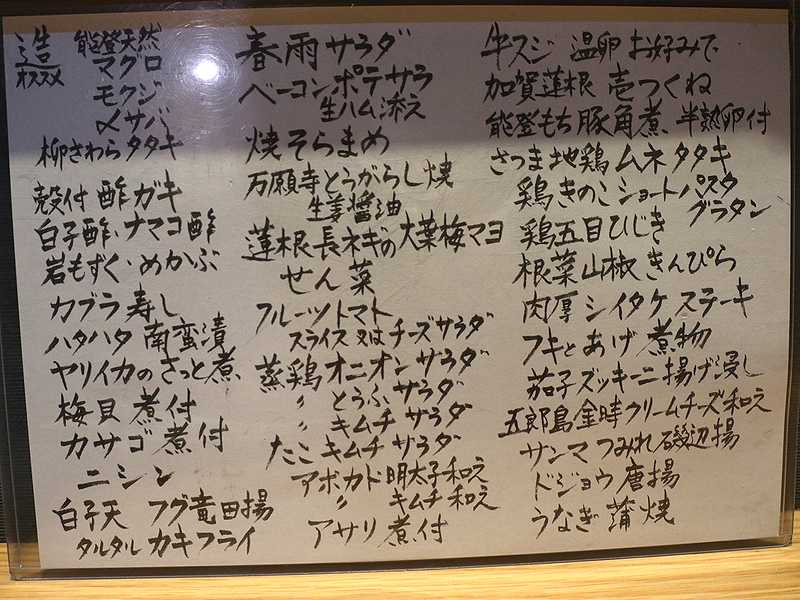 造 能登天然
オススメ マグロ
モクジ
〆サバ
柳さわらタタキ
殻付 酢ガキ
白子酢・ナマコ酢
岩もずく・めかぶ
カブラ寿し
ハタハタ 南蛮漬
ヤリイカのさっと煮
梅貝 煮付
カサゴ 煮付
ニシン
白子天 フグ竜田揚
タルタル カキフライ
春雨サラダ
ベーコンポテサラ
生ハム添え
焼そらまめ
万願寺とうがらし焼
生姜醤油
蓮根長ネギの大葉梅マヨ
せん菜
フルーツトマト
スライス 又は チーズサラダ
蒸鶏オニオンサラダ
〃 とうふサラダ
〃 キムチサラダ
たこキムチサラダ
アボカド明太子和え
〃 キムチ和え
アサリ煮付
牛スジ 温卵 お好みで
加賀蓮根 壱つくね
能登もち豚角煮 半熟卵付
さつま地鶏ムネタタキ
鶏きのこショートパスタ
グラタン
鶏五目ひじき
根菜山椒きんぴら
肉厚シイタケステーキ
フキとあげ煮物
茄子ズッキーニ揚げ浸し
五郎島金時クリームチーズ和え
サンマつみれ磯辺揚
ドジョウ唐揚
うなぎ蒲焼